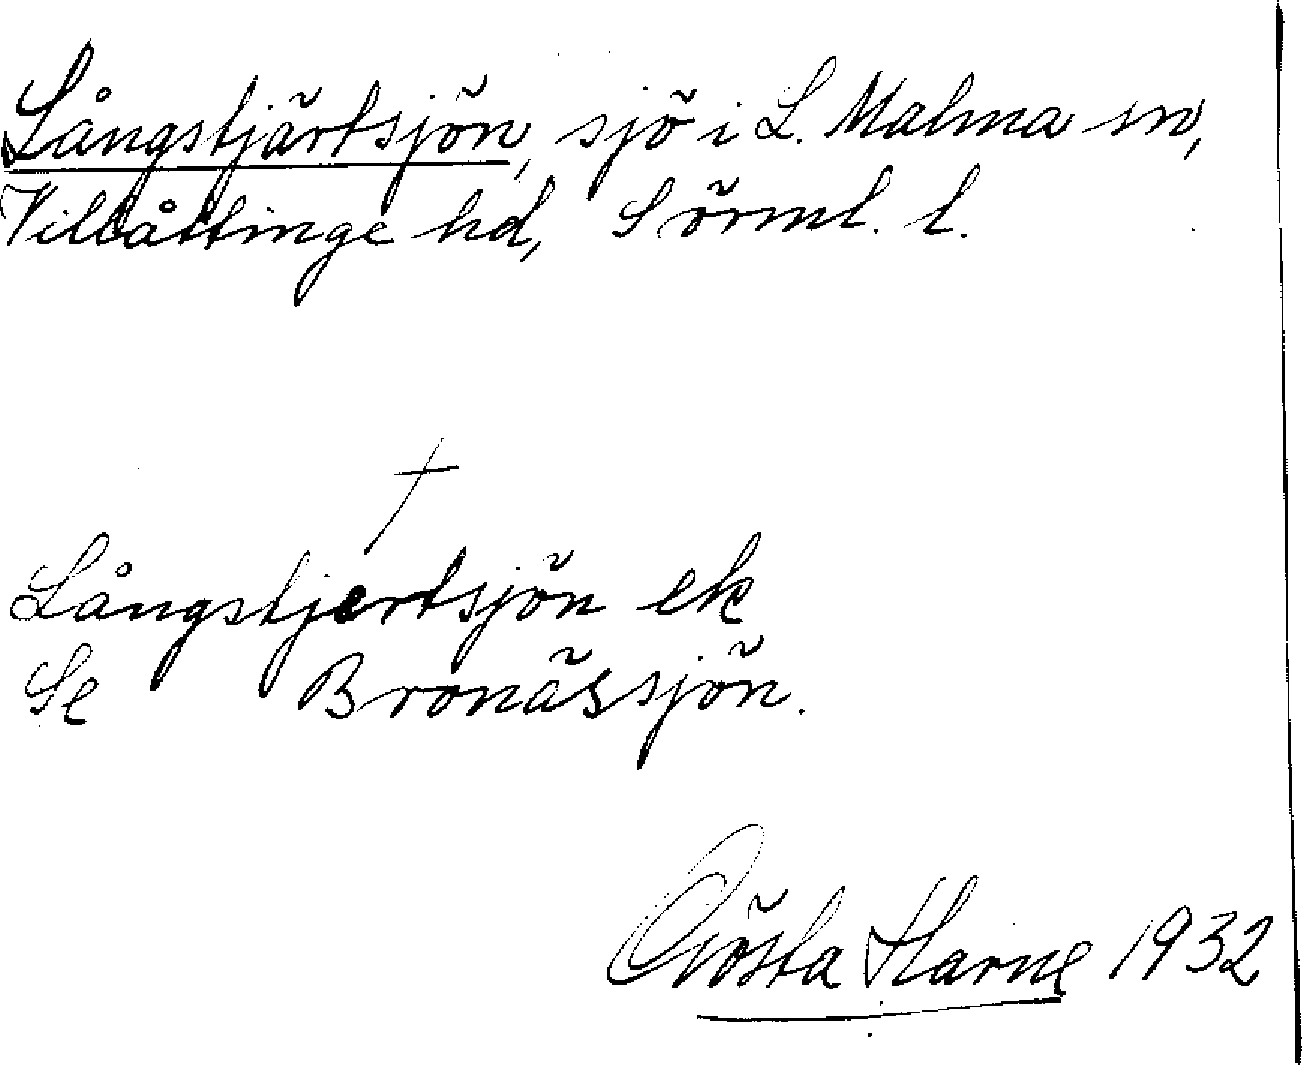 Långstjärtsjön, sjö i L. Malma sn,
Villåttinge hd, Sörml. l.
†
Långstjertsjön ek
Se Bronässjön.
Gösta Harne 1932